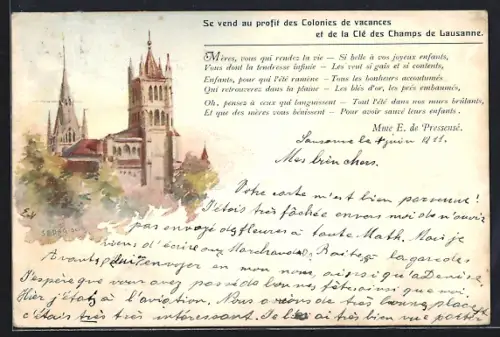 Se vend au profit des Colonies de vacances
et de la Clé des Champs de Lausanne.
Mères, vous qui rendez la vie — Si belle à vos joyeux enfants,
Vous dont la tendresse infinie — Les veut si gais et si contents,
Enfants, pour qui l'été ramène — Tous les bonheurs accoutumés
Qui retrouverez dans la plaine — Les blés d'or, les prés embaumés,
Oh, pensez à ceux qui languissent — Tout l'été dans nos murs brûlants,
Et que des mères vous bénissent — Pour avoir sauvé leurs enfants.
Mme E. de Pressensé.
Lausanne le juin 1911.
Mes bien chers.
Votre carte m'est bien parvenue!
J'étais très fâchée envers moi de n'avoir
pas envoyé des fleurs à tante Math. Mais je
viens d'écrire aux
en mon nom, ainsi qu'à Denise,
J'espère que vous avez passé de bonnes fêtes ainsi que moi.
Hier j'étais à l'aviation. Nous avions de très bonnes places
c'était très très intéressant. Je l'ai très bien vue